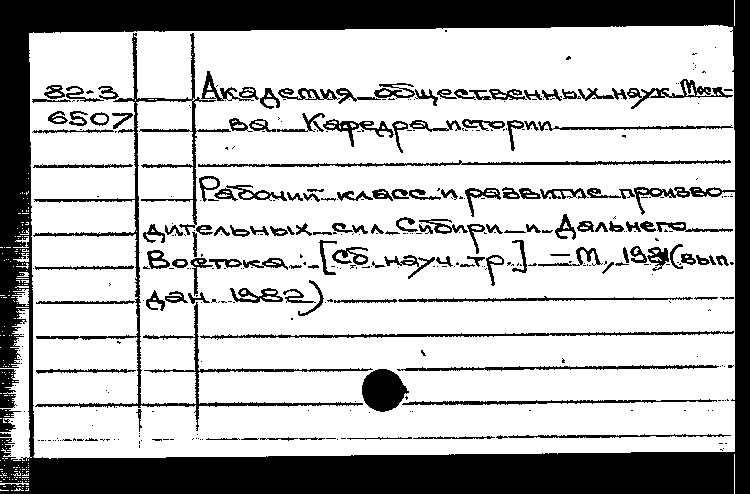 82-3 Академия общественных наук Моск-
6507 ва Кафедра истории.
Рабочий класс и развитие произво-
дительных сил Сибири и Дальнего
Востока : [Сб. науч. тр.] – М, 1981 (вып.
дан. 1982)